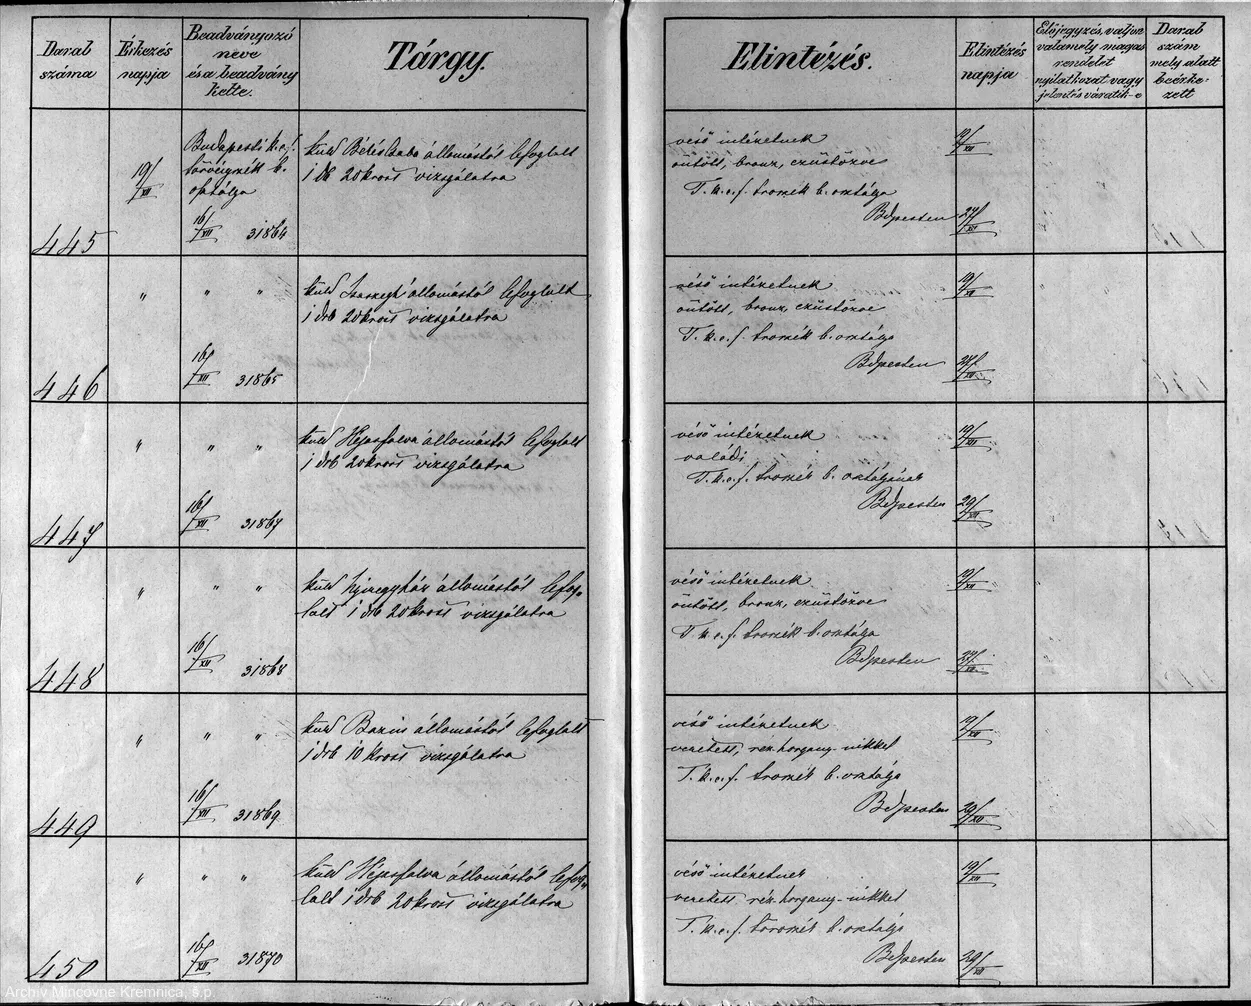 Darab száma
Érkezés napja
Beadványozó neve és a beadvány kelte.
Tárgy.
Elintézés.
Elintézés napja
Előjegyzés, valjon valamely magas rendelet nyilatkozat vagy jelentés váratik-e
Darab szám mely alatt beérkezett
445
19/XII
Budapesti k. e. f.
törvszék b.
osztálya
16/XII 31864
küld Békéscsaba állomástól lefoglalt
1 db 20 krost vizsgálatra
véső intézetnek
öntött, bronz, ezüstözve
T. k. e. f. b. osztálya
Bdpesten
19/XII
27/XII
446
" " "
16/XII 31865
küld állomástól lefoglalt
1 drb 20 krost vizsgálatra
véső intézetnek
öntött, bronz, ezüstözve
T. k. e. f. b. osztálya
Bdpesten
19/XII
27/XII
447
" " "
16/XII 31867
küld Héjasfalva állomástól lefoglalt
1 drb 20 krost vizsgálatra
véső intézetnek
valódi
T. k. e. f. b. osztályának
Bdpesten
19/XII
29/XII
448
" " "
16/XII 31868
küld állomástól lefog-
lalt 1 drb 20 krost vizsgálatra
véső intézetnek
öntött, bronz, ezüstözve
T. k. e. f. b. osztálya
Bdpesten
19/XII
27/XII
449
" " "
16/XII 31869
küld állomástól lefoglalt
1 drb 10 krost vizsgálatra
véső intézetnek
veretett, réz-horgany-nikkel
T. k. e. f. b. osztálya
Bdpesten
19/XII
29/XII
450
" " "
16/XII 31870
küld állomástól lefog-
lalt 1 drb 20 krost vizsgálatra
véső intézetnek
veretett réz-horgany-nikkel
T. k. e. f. b. osztálya
Bdpesten
19/XII
29/XII
Archív Mincovne Kremnica, š.p.